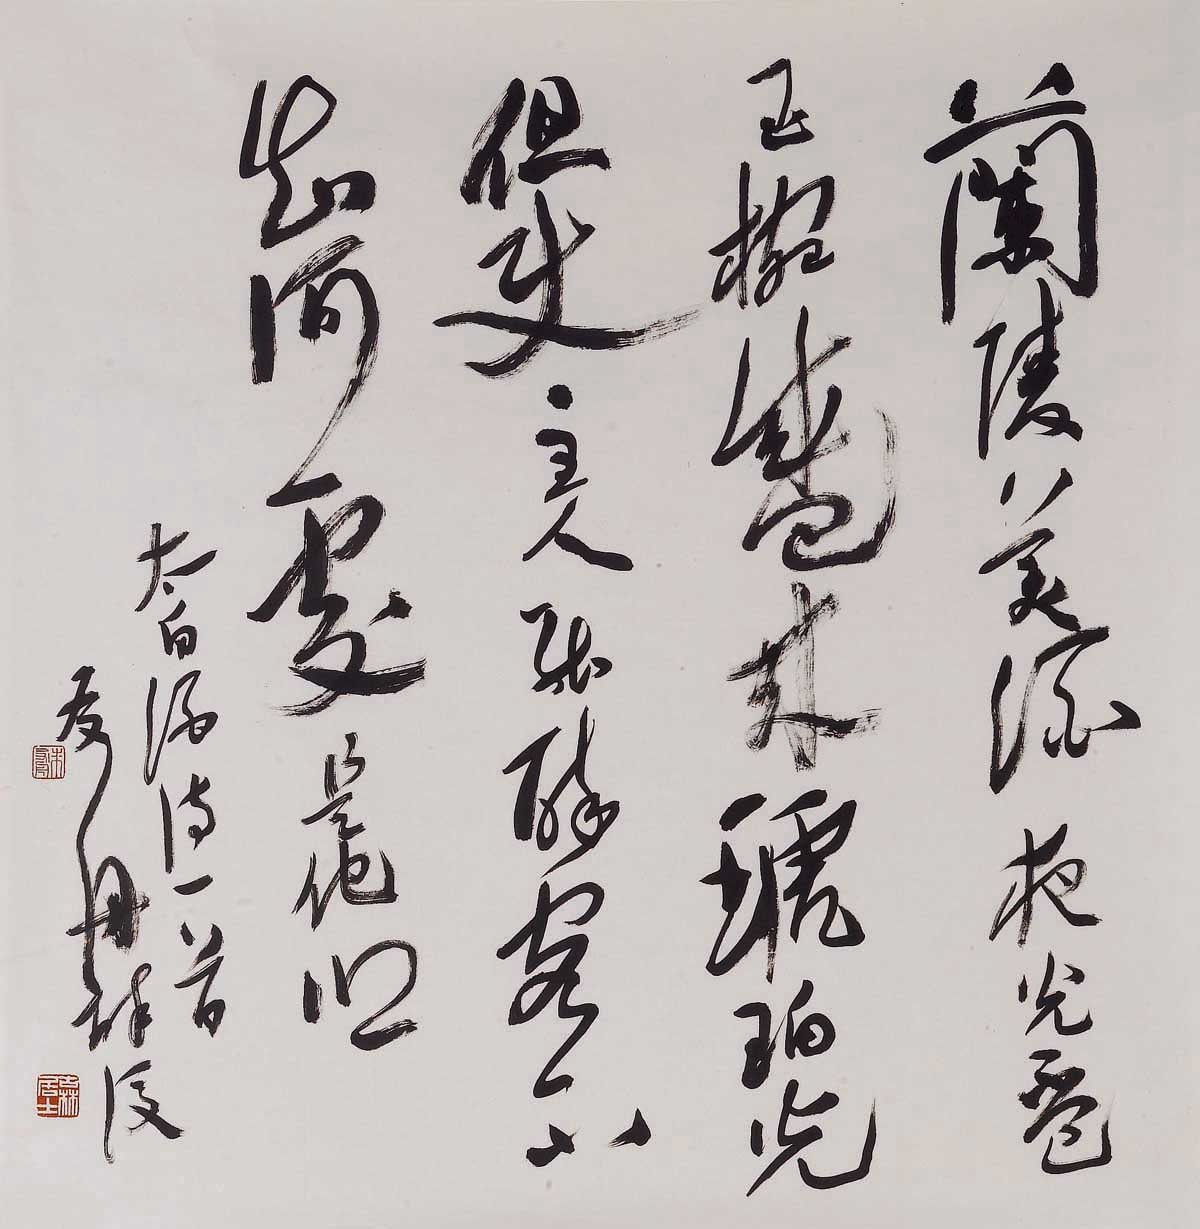 蘭陵美酒夜光盃
玉椀盛來琥珀光
但使主人能醉客不
知何處是他鄉
太白詩一首
丹
居士